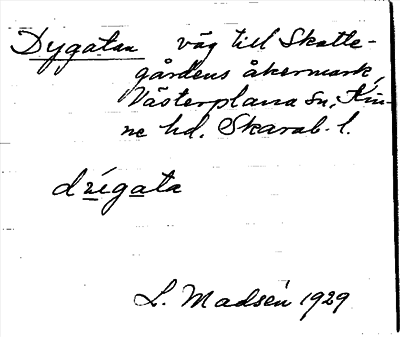 Dygatan väg till Skatte-
gårdens åkermark,
Västerplana sn, Kin-
ne hd. Skarab. l.
dýgata
L. Madsén 1929